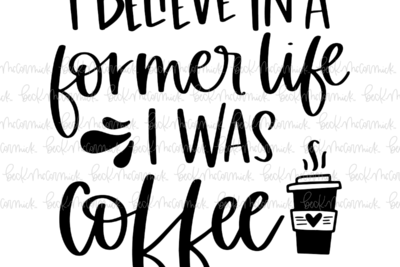 I BELIEVE IN A
former life
I WAS
coffee